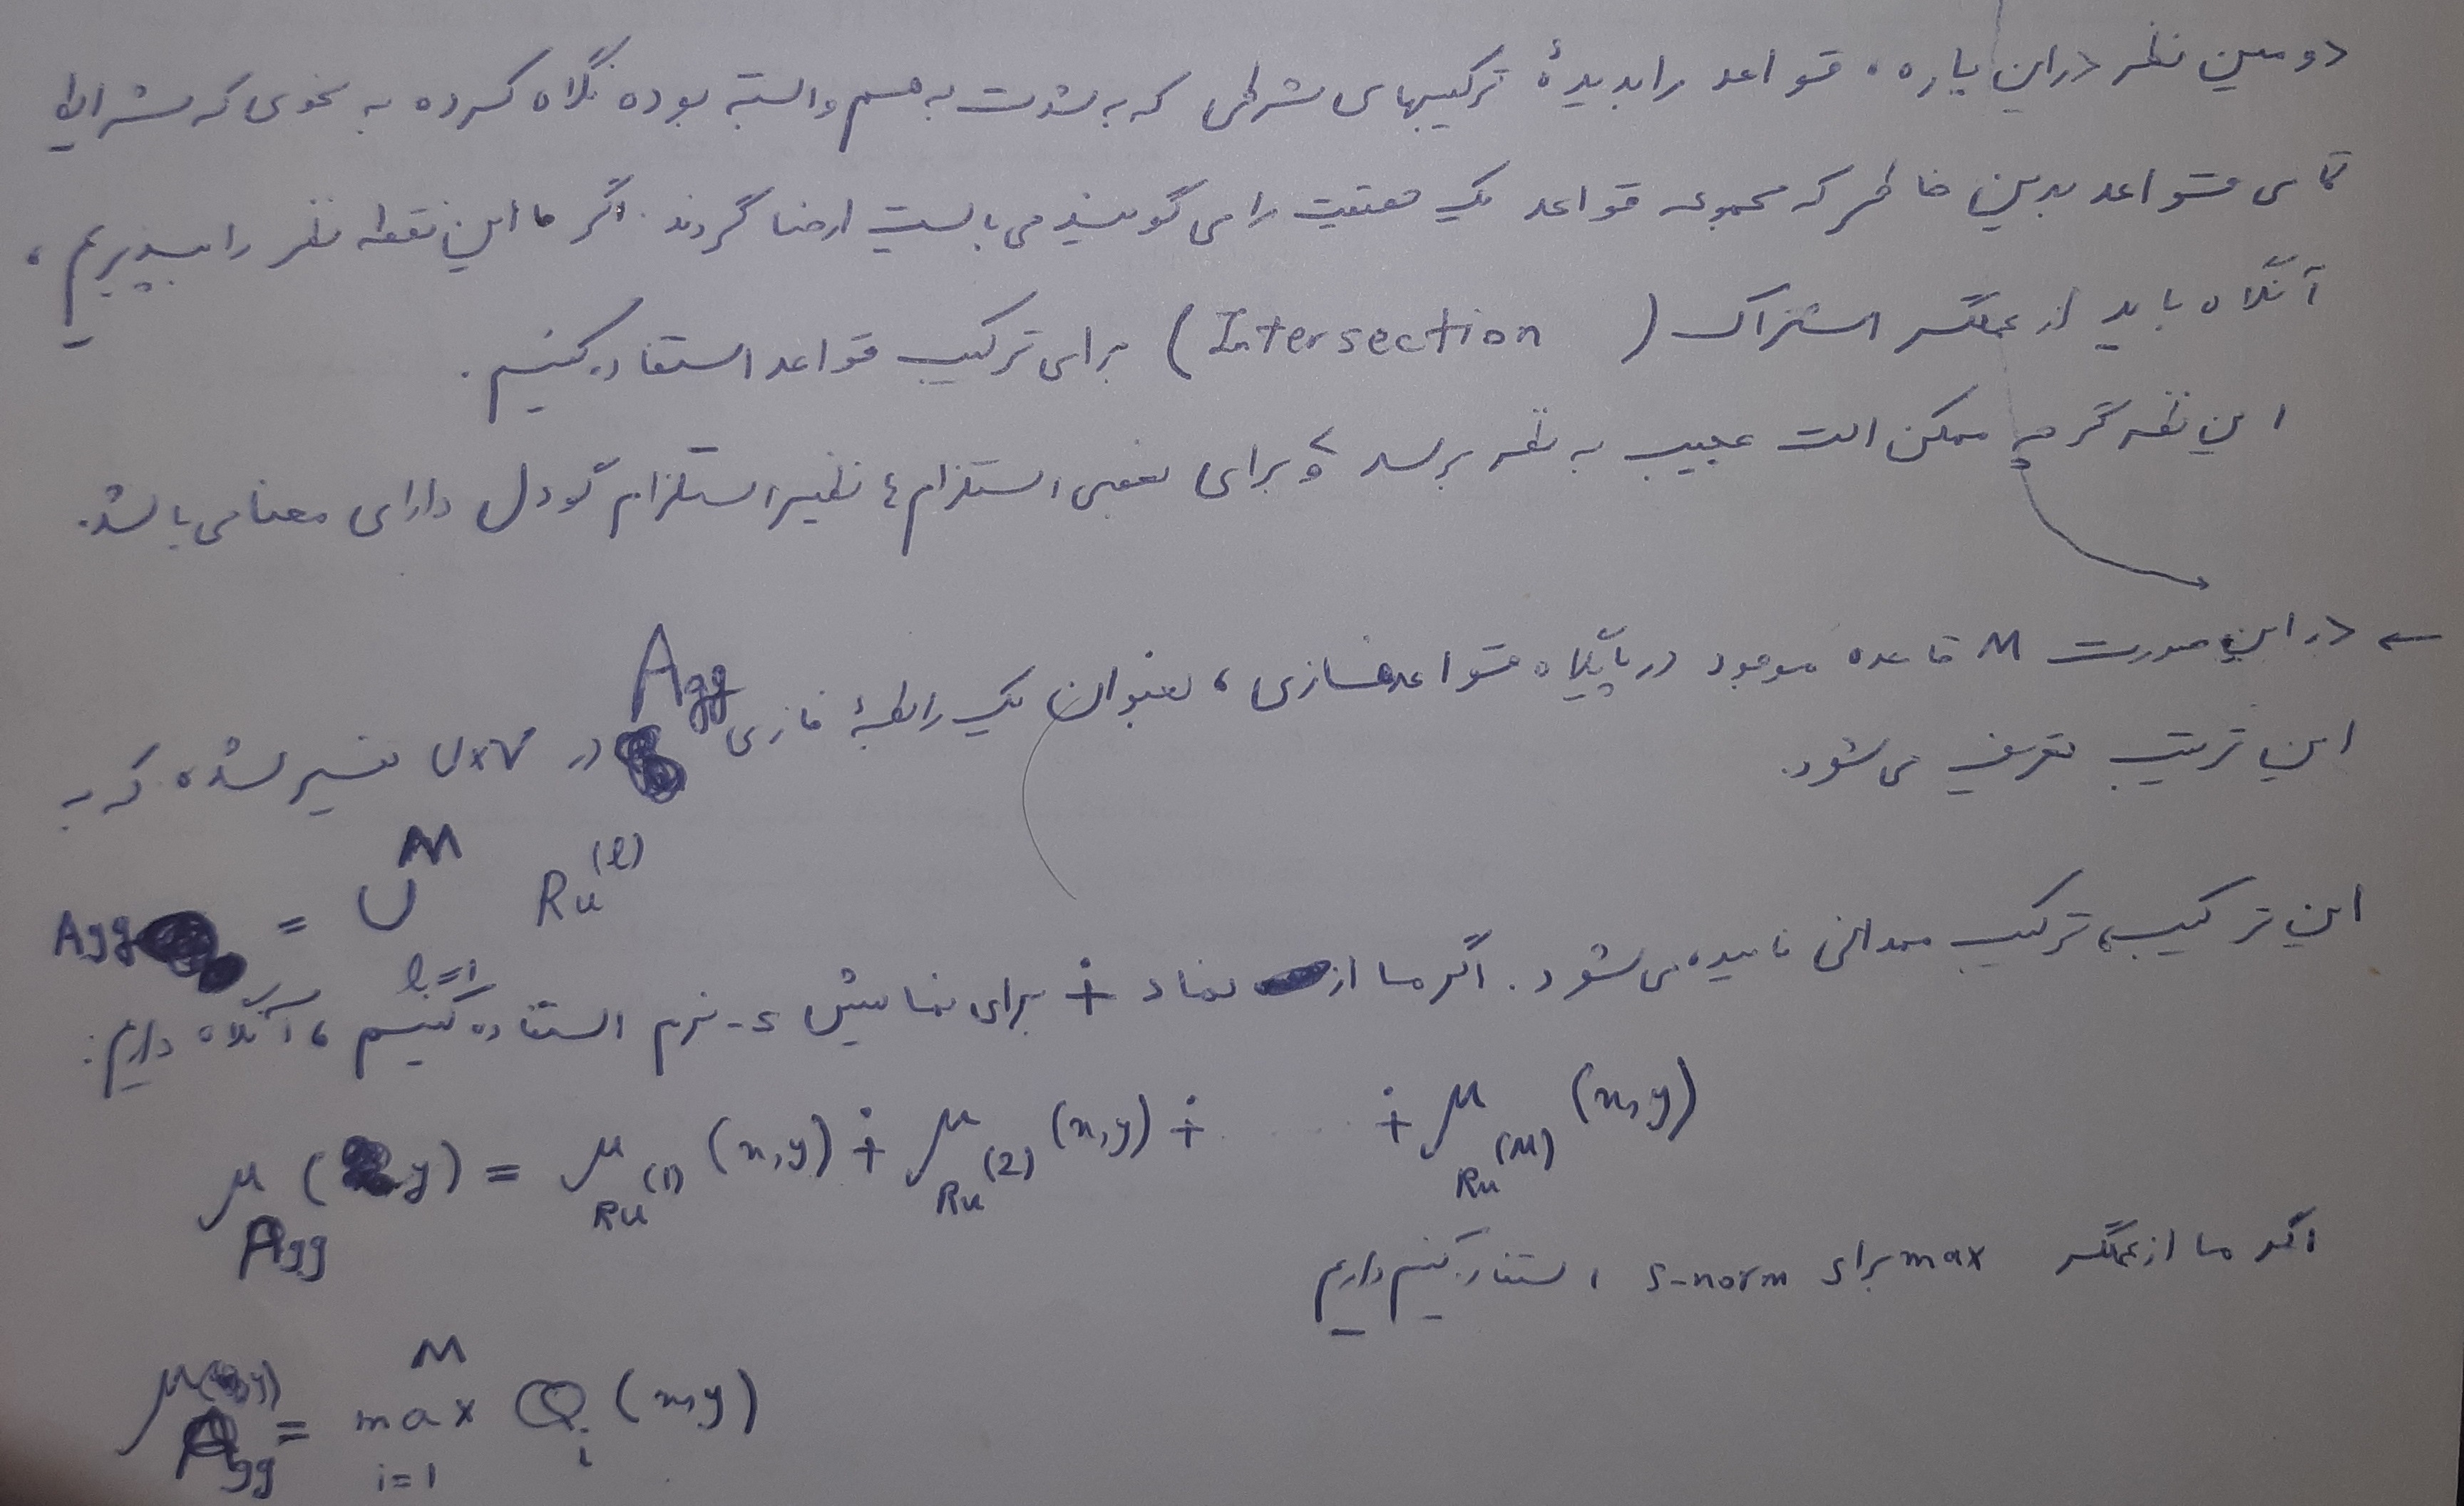 دومین نظر در این باره، قواعد را بدیدهٔ ترکیبهای شرطی که به شدت به هم وابسته بوده نگاه کرده به نحوی که شرایط
تمامی قواعد بدین خاطر که مجموعه قواعد یک حقیقت را می گویند می بایست ارضا گردند. اگر ما این نقطه نظر را بپذیریم،
آنگاه باید از عملگر اشتراک (Intersection) برای ترکیب قواعد استفاده کنیم.
این نظر گرچه ممکن است عجیب به نظر برسد و برای بعضی استلزام ها نظیر استلزام گودل دارای معنا می باشد.
← در این صورت M قاعده موجود در پایگاه قواعد فازی، بعنوان یک رابطهٔ فازی Agg در U×V تفسیر شده که به
این ترتیب تعریف می شود.
Agg = ∪_{l=1}^{M} Ru^{(l)}
این ترکیب، ترکیب ممدانی نامیده می شود. اگر ما از نماد ∔ برای نمایش s-نرم استفاده کنیم، آنگاه داریم:
μ_{Agg}(y) = μ_{Ru^{(1)}}(x,y) ∔ μ_{Ru^{(2)}}(x,y) ∔ ..... ∔ μ_{Ru^{(M)}}(x,y)
اگر ما از عملگر max برای s-norm استفاده کنیم داریم
μ_{Agg}(y) = max_{i=1}^{M} Q_i(x,y)